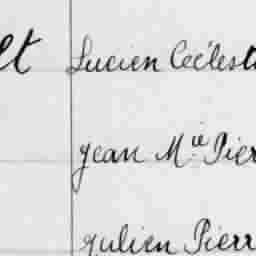 et Lucien Célest
Jean M.ie Pier
Julien Pierr